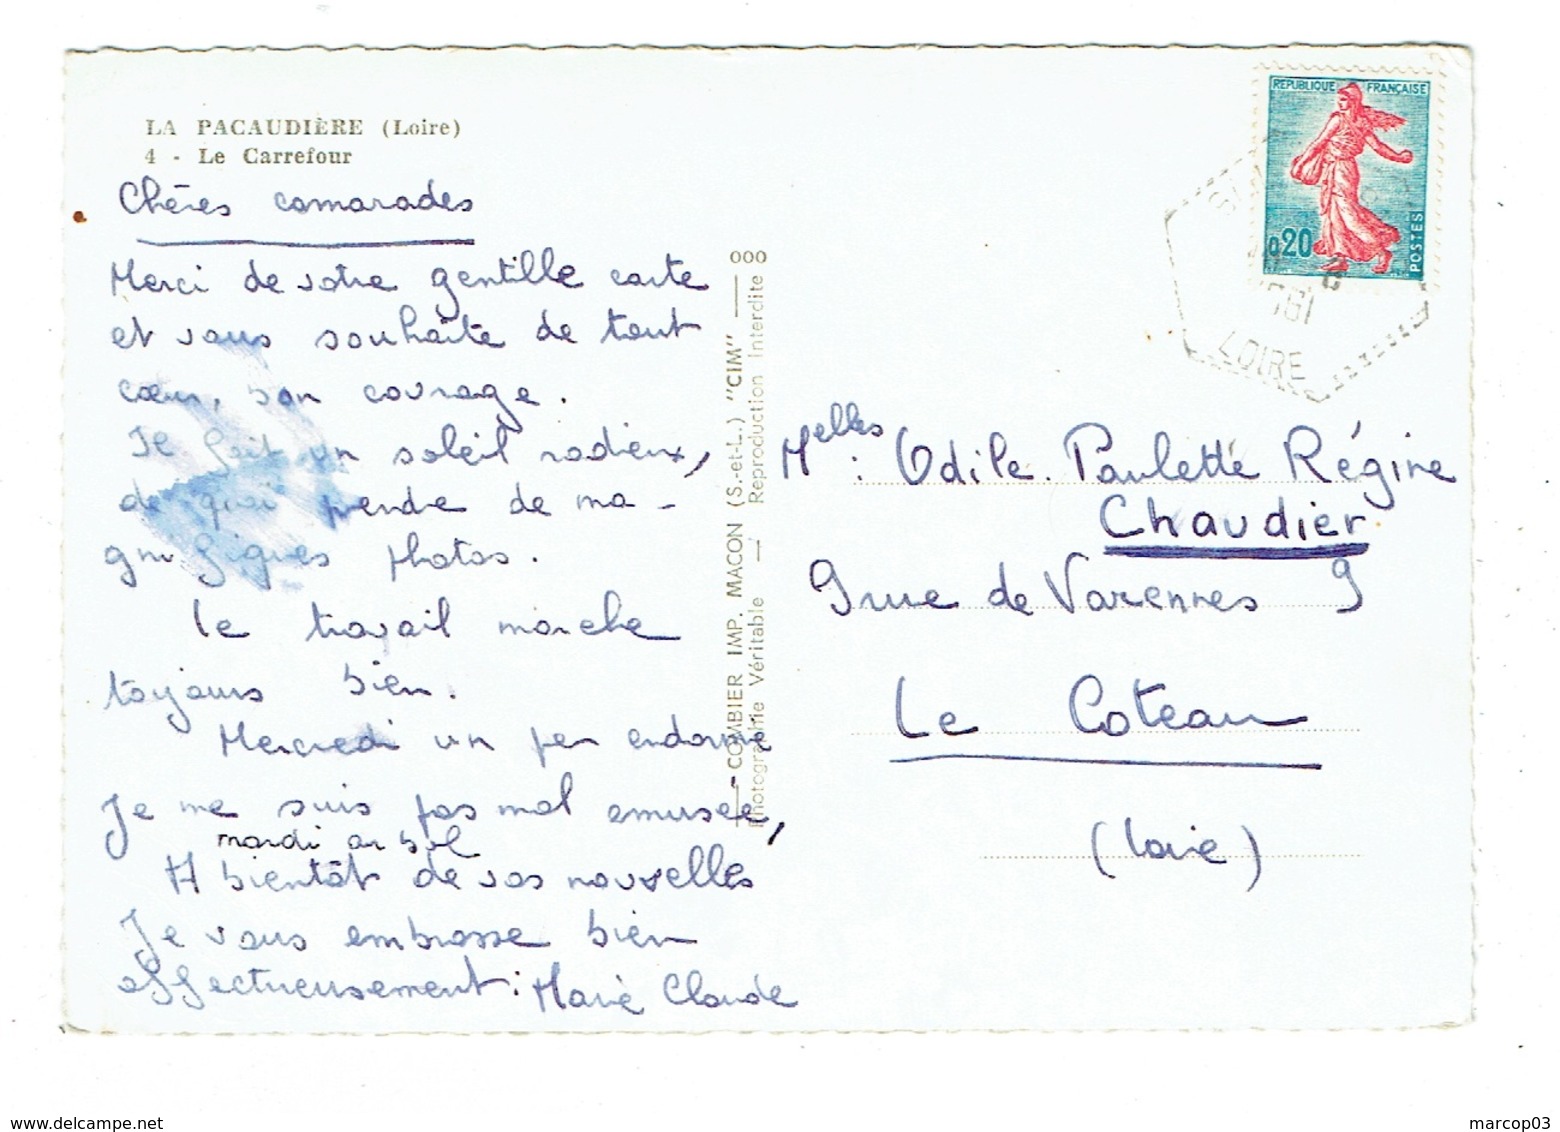 LA PACAUDIÈRE (Loire)
4 - Le Carrefour
Chères camarades
Merci de votre gentille carte
et vous souhaite de tout
cœur, bon courage.
Il fait un soleil radieux,
de quoi prendre de ma-
gnifiques photos.
Le travail marche
toujours bien.
Mercredi un peu endormie
Je me suis pas mal amusée,
mardi au bal
A bientôt de vos nouvelles
Je vous embrasse bien
affectueusement : Marie Claude
COMBIER IMP. MACON (S.-et-L.) "CIM"
Photographie Véritable — Reproduction Interdite
REPUBLIQUE FRANÇAISE
0,20
POSTES
LOIRE
Melles : Odile. Paulette Régine
Chaudier
9 rue de Varennes 9
Le Coteau
(Loire)
marcop03